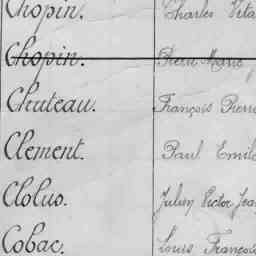 Chopin. Charles Vita
Chopin. Pierre Marie J
Chuteau. François Pierre
Clement. Paul Emile
Clolus. Julien Victor Jea
Cobac. Louis François